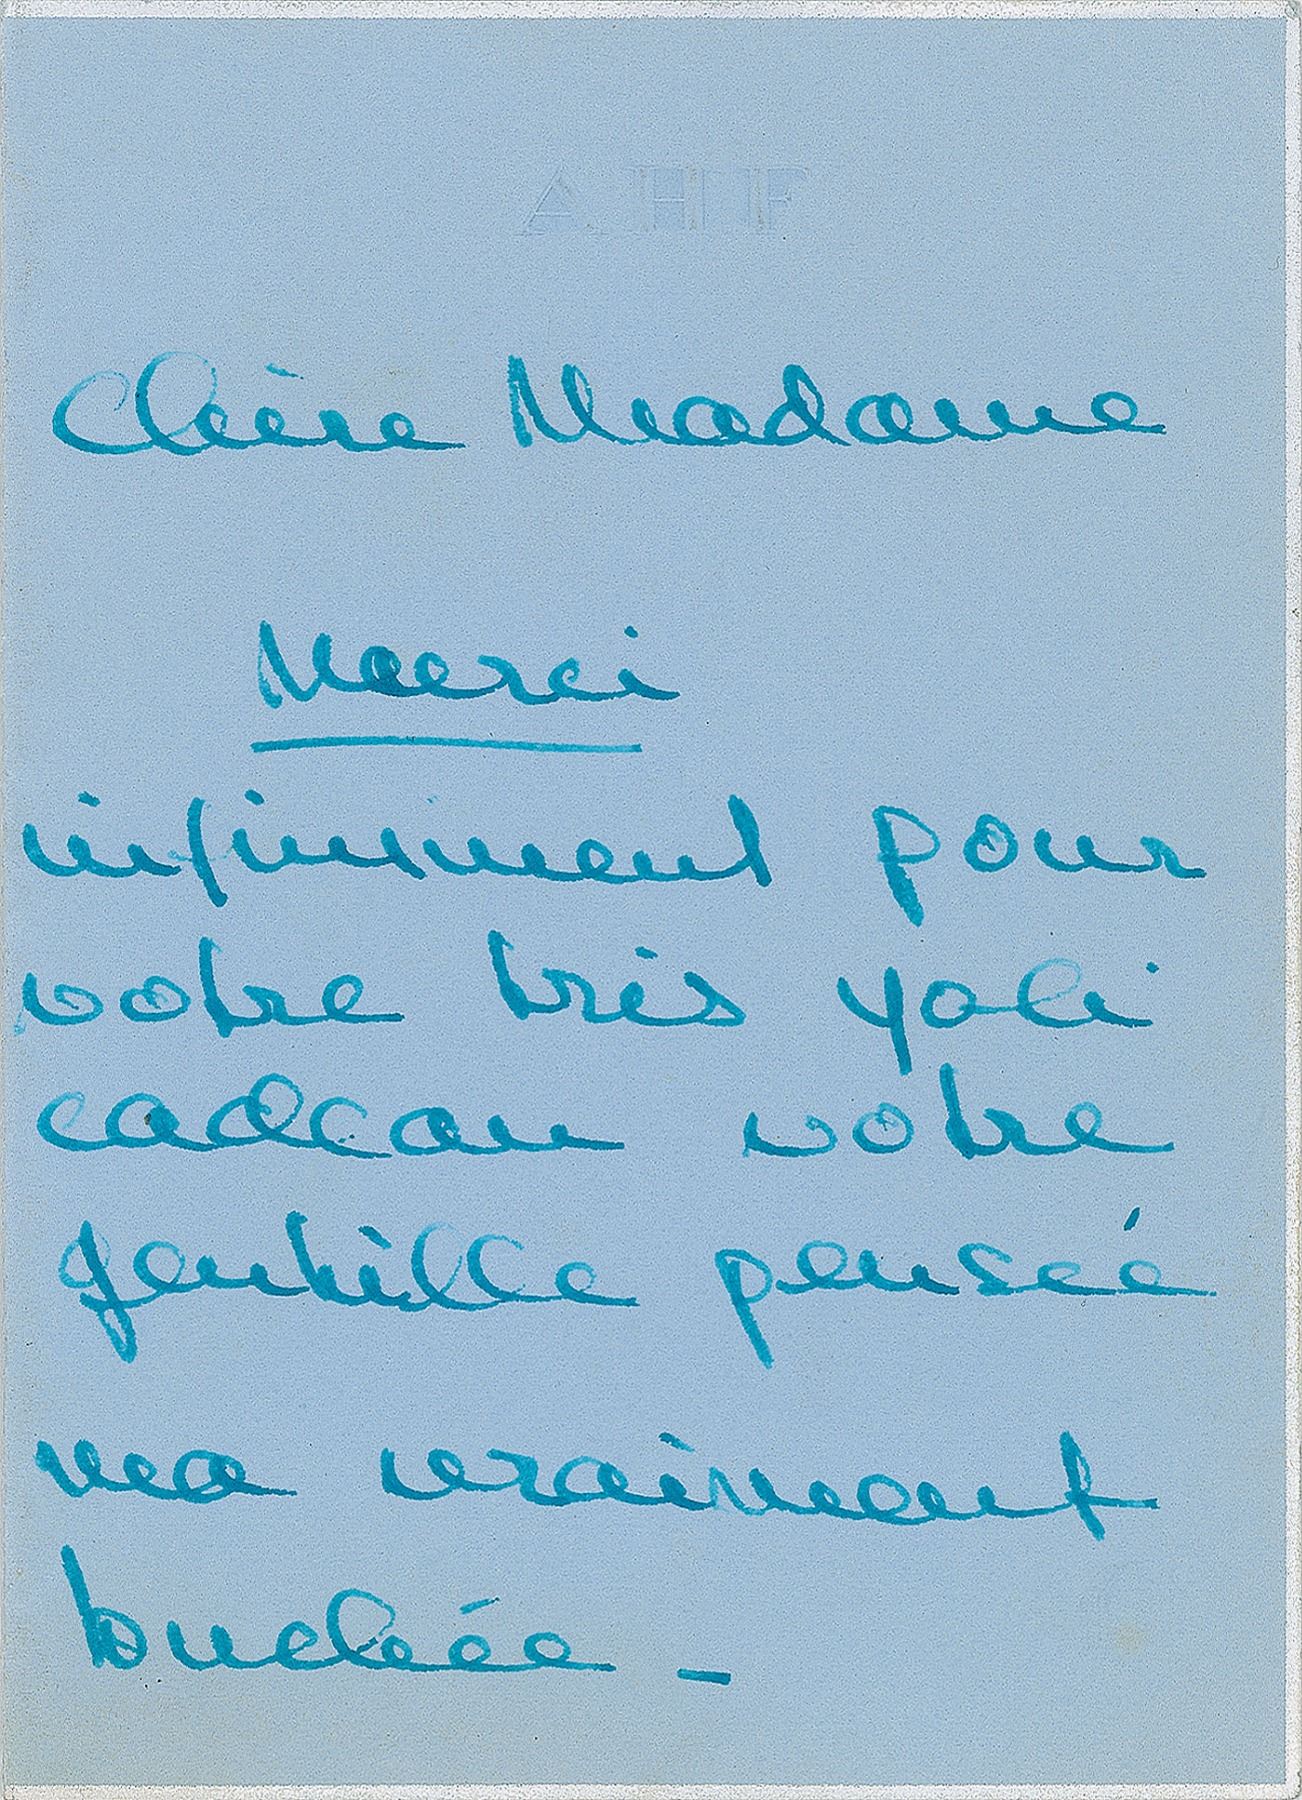 AHF
Chère Madame
Merci
infiniment pour
votre très joli
cadeau votre
gentille pensée
ma vraiment
touchée -